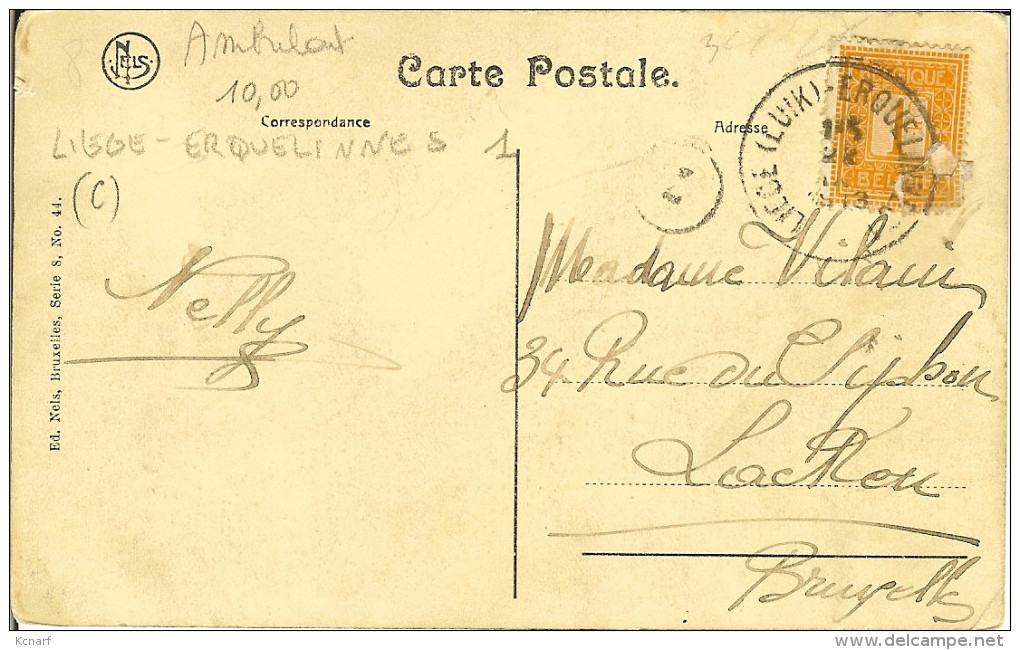 NELS
Ambulant
10,00
Carte Postale.
Correspondance
Adresse
LIEGE - ERQUELINNES 1
(C)
Ed. Nels, Bruxelles, Serie 8, No. 44.
Nelly
BELGIQUE
1
LIEGE (LUIK) - ERQUELINN
1913
Madame Vilain
34 Rue du Siphon
Laeken
Bruxelles
Kcnarf
delcampe.net